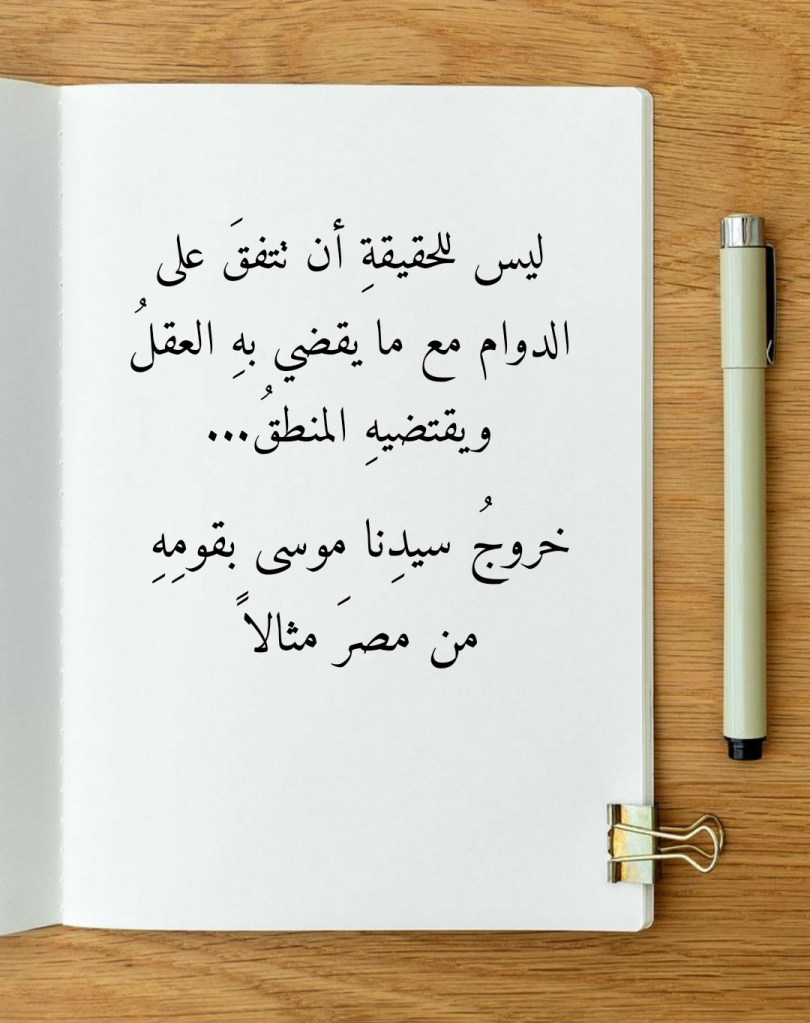 ليس للحقيقةِ أن تتفقَ على
الدوام مع ما يقضي بهِ العقلُ
ويقتضيهِ المنطقُ...
خروجُ سيدِنا موسى بقومِهِ
من مصرَ مثالاً